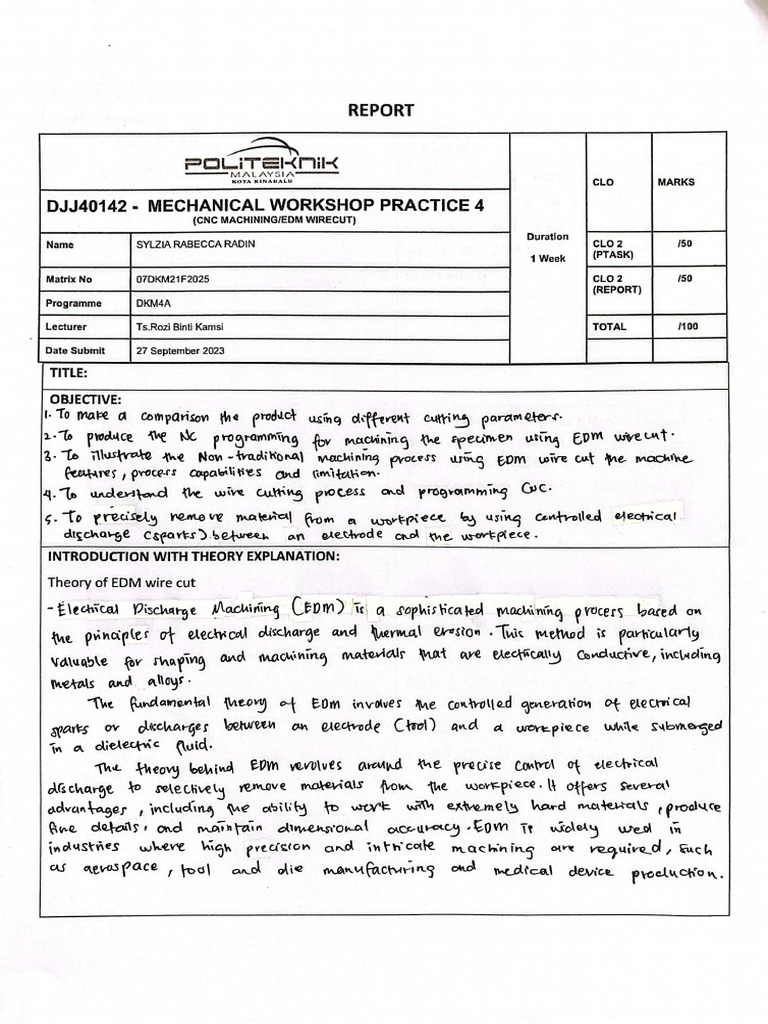 REPORT
POLITEKNIK
MALAYSIA
KOTA KINABALU
CLO
MARKS
DJJ40142 - MECHANICAL WORKSHOP PRACTICE 4
(CNC MACHINING/EDM WIRECUT)
Duration
1 Week
Name
SYLZIA RABECCA RADIN
CLO 2
(PTASK)
/50
Matrix No
07DKM21F2025
CLO 2
(REPORT)
/50
Programme
DKM4A
Lecturer
Ts.Rozi Binti Kamsi
TOTAL
/100
Date Submit
27 September 2023
TITLE:
OBJECTIVE:
1. To make a comparison the product using different cutting parameters.
2. To produce the NC programming for machining the specimen using EDM wirecut.
3. To illustrate the Non-traditional machining process using EDM wire cut the machine
features, process capabilities and limitation.
4. To understand the wire cutting process and programming CNC.
5. To precisely remove material from a workpiece by using controlled electrical
discharge (sparks) between an electrode and the workpiece.
INTRODUCTION WITH THEORY EXPLANATION:
Theory of EDM wire cut
- Electrical Discharge Machining (EDM) is a sophisticated machining process based on
the principles of electrical discharge and thermal erosion. This method is particularly
valuable for shaping and machining materials that are electrically conductive, including
metals and alloys.
The fundamental theory of EDM involves the controlled generation of electrical
sparks or discharges between an electrode (tool) and a workpiece while submerged
in a dielectric fluid.
The theory behind EDM revolves around the precise control of electrical
discharge to selectively remove materials from the workpiece. It offers several
advantages, including the ability to work with extremely hard materials, produce
fine details, and maintain dimensional accuracy. EDM is widely used in
industries where high precision and intricate machining are required, such
as aerospace, tool and die manufacturing and medical device production.